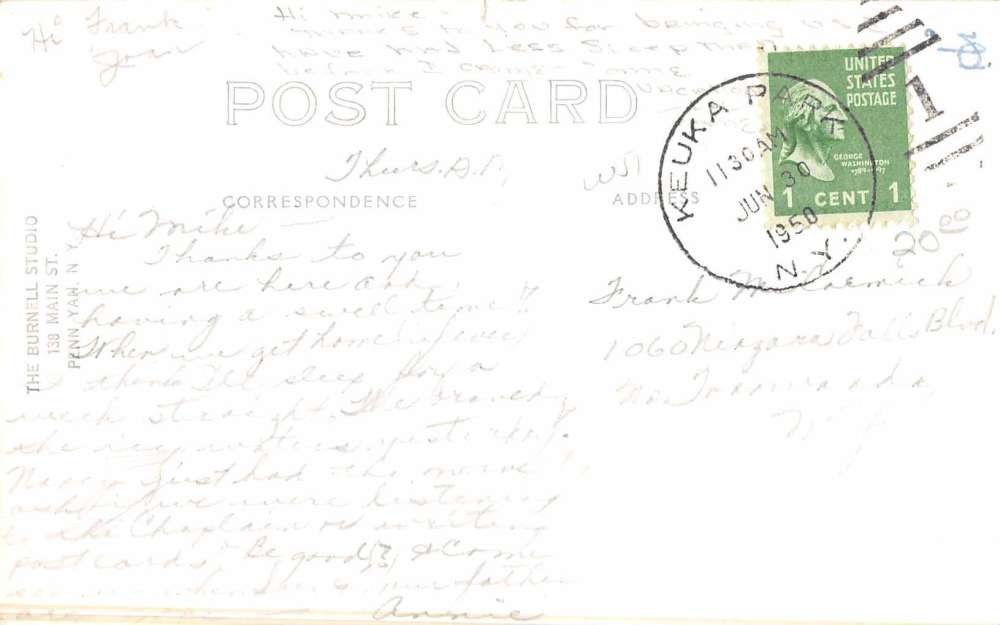 Hi Frank
Joan
Hi Mike -
Thanks to you for bringing us
have had less sleep than
before I came. some
POST CARD
Thurs.
CORRESPONDENCE
ADDRESS
THE BURNELL STUDIO
138 MAIN ST.
PENN YAN, N.Y.
KEUKA PARK
1130 AM
JUN 30
1950
N.Y.
1
UNITED
STATES
POSTAGE
GEORGE
WASHINGTON
1789-1797
1 CENT 1
20 00
Hi Mike -
Thanks to you
we are here and
having a swell time!!
When we get home if ever
I think I'll sleep for a
week straight. We braved
the icy waters yesterday.
Nancy just had the nerve to
ask if we were listening
to the Chaplain or writing
postcards. Be good, & Come
see us
Annie
Frank McCormick
1060 Niagara Falls Blvd.
No. Tonawanda,
N.Y.